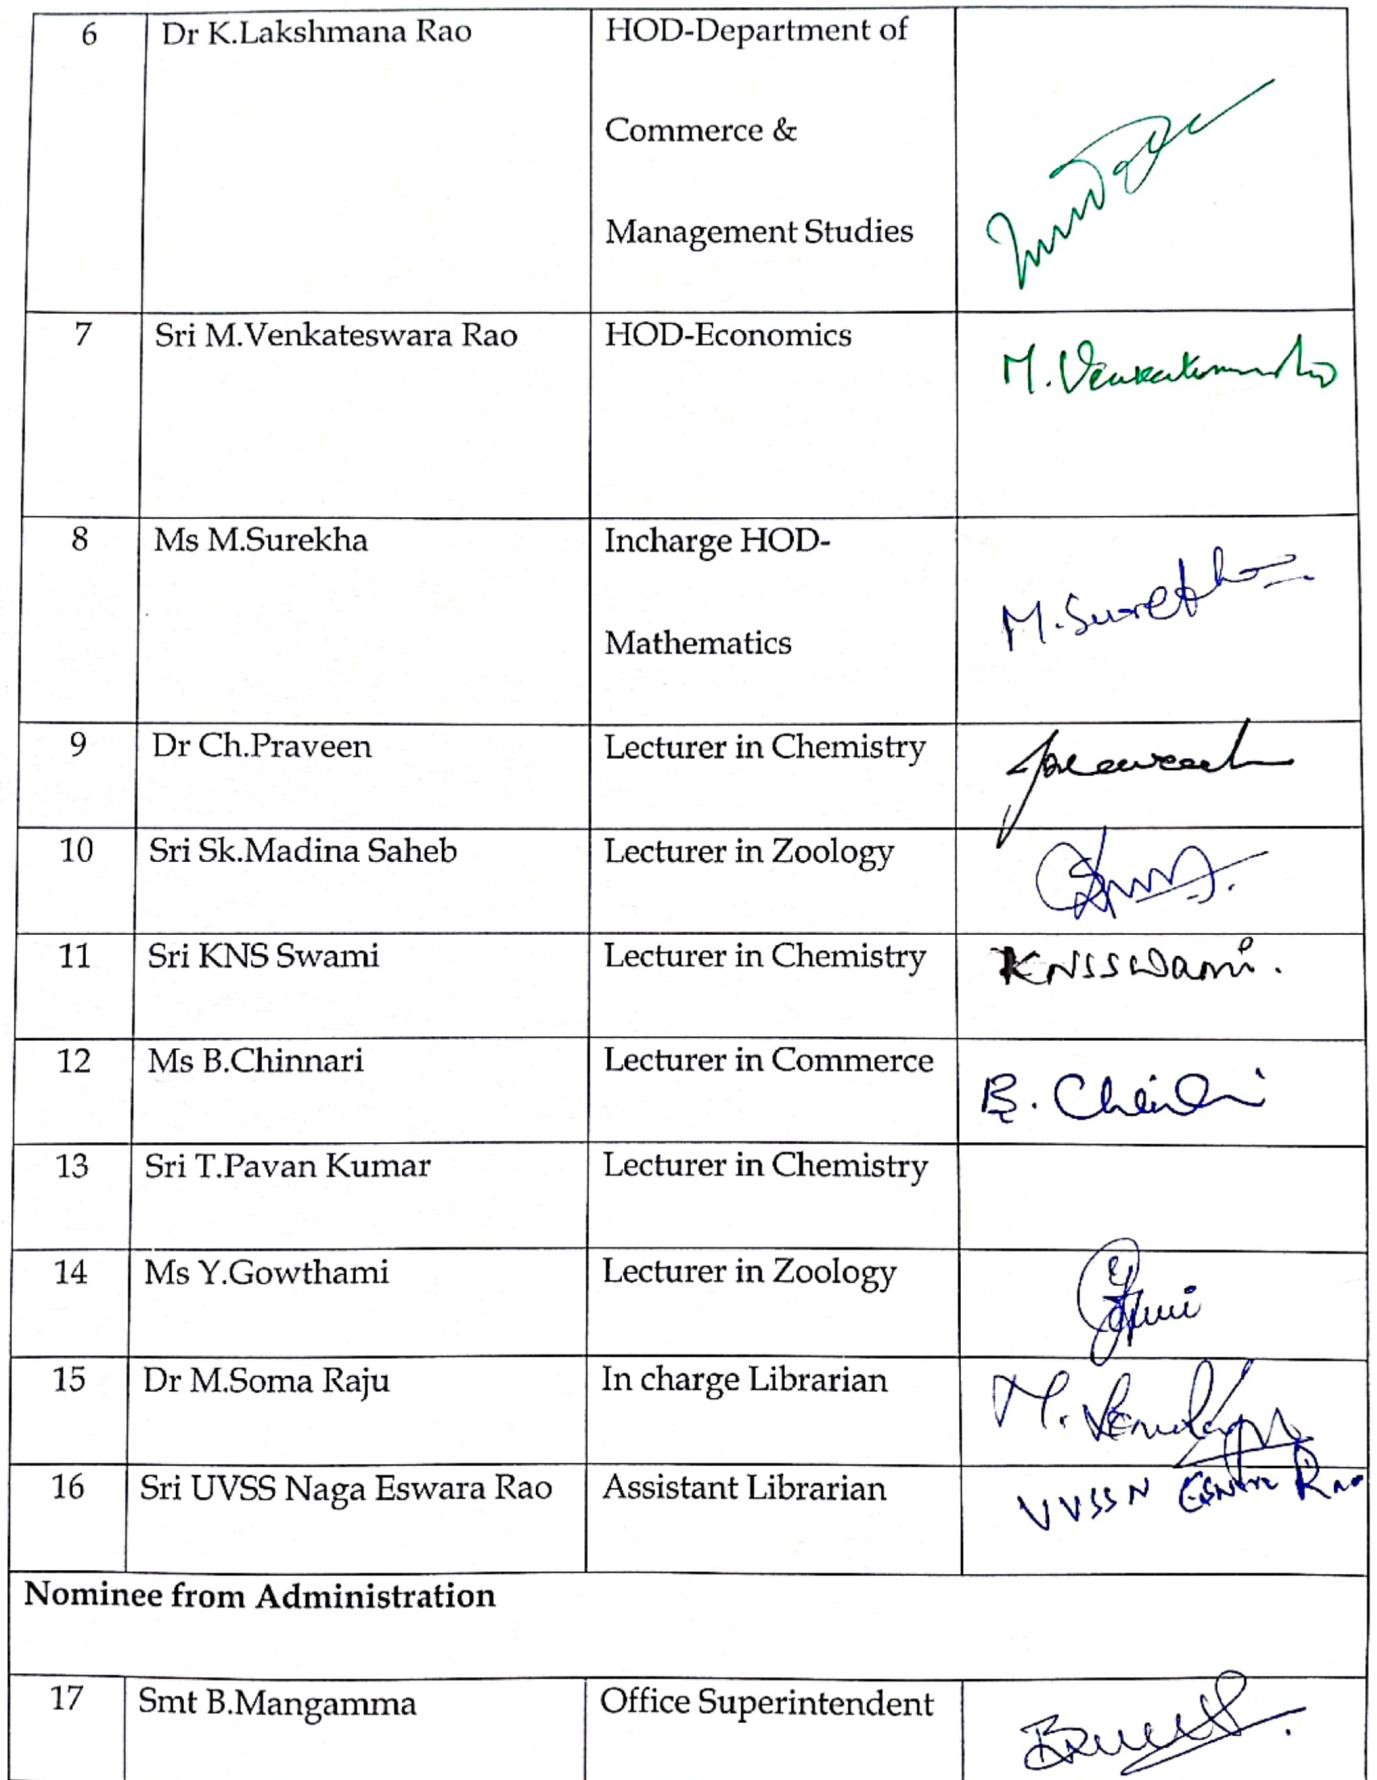 6 Dr K.Lakshmana Rao HOD-Department of
Commerce &
Management Studies
7 Sri M.Venkateswara Rao HOD-Economics
M.Venkateswara Rao
8 Ms M.Surekha Incharge HOD-
M.Surekha
Mathematics
9 Dr Ch.Praveen Lecturer in Chemistry
10 Sri Sk.Madina Saheb Lecturer in Zoology
11 Sri KNS Swami Lecturer in Chemistry KNSSwami.
12 Ms B.Chinnari Lecturer in Commerce
13 Sri T.Pavan Kumar Lecturer in Chemistry
14 Ms Y.Gowthami Lecturer in Zoology
15 Dr M.Soma Raju In charge Librarian
16 Sri UVSS Naga Eswara Rao Assistant Librarian
Nominee from Administration
17 Smt B.Mangamma Office Superintendent